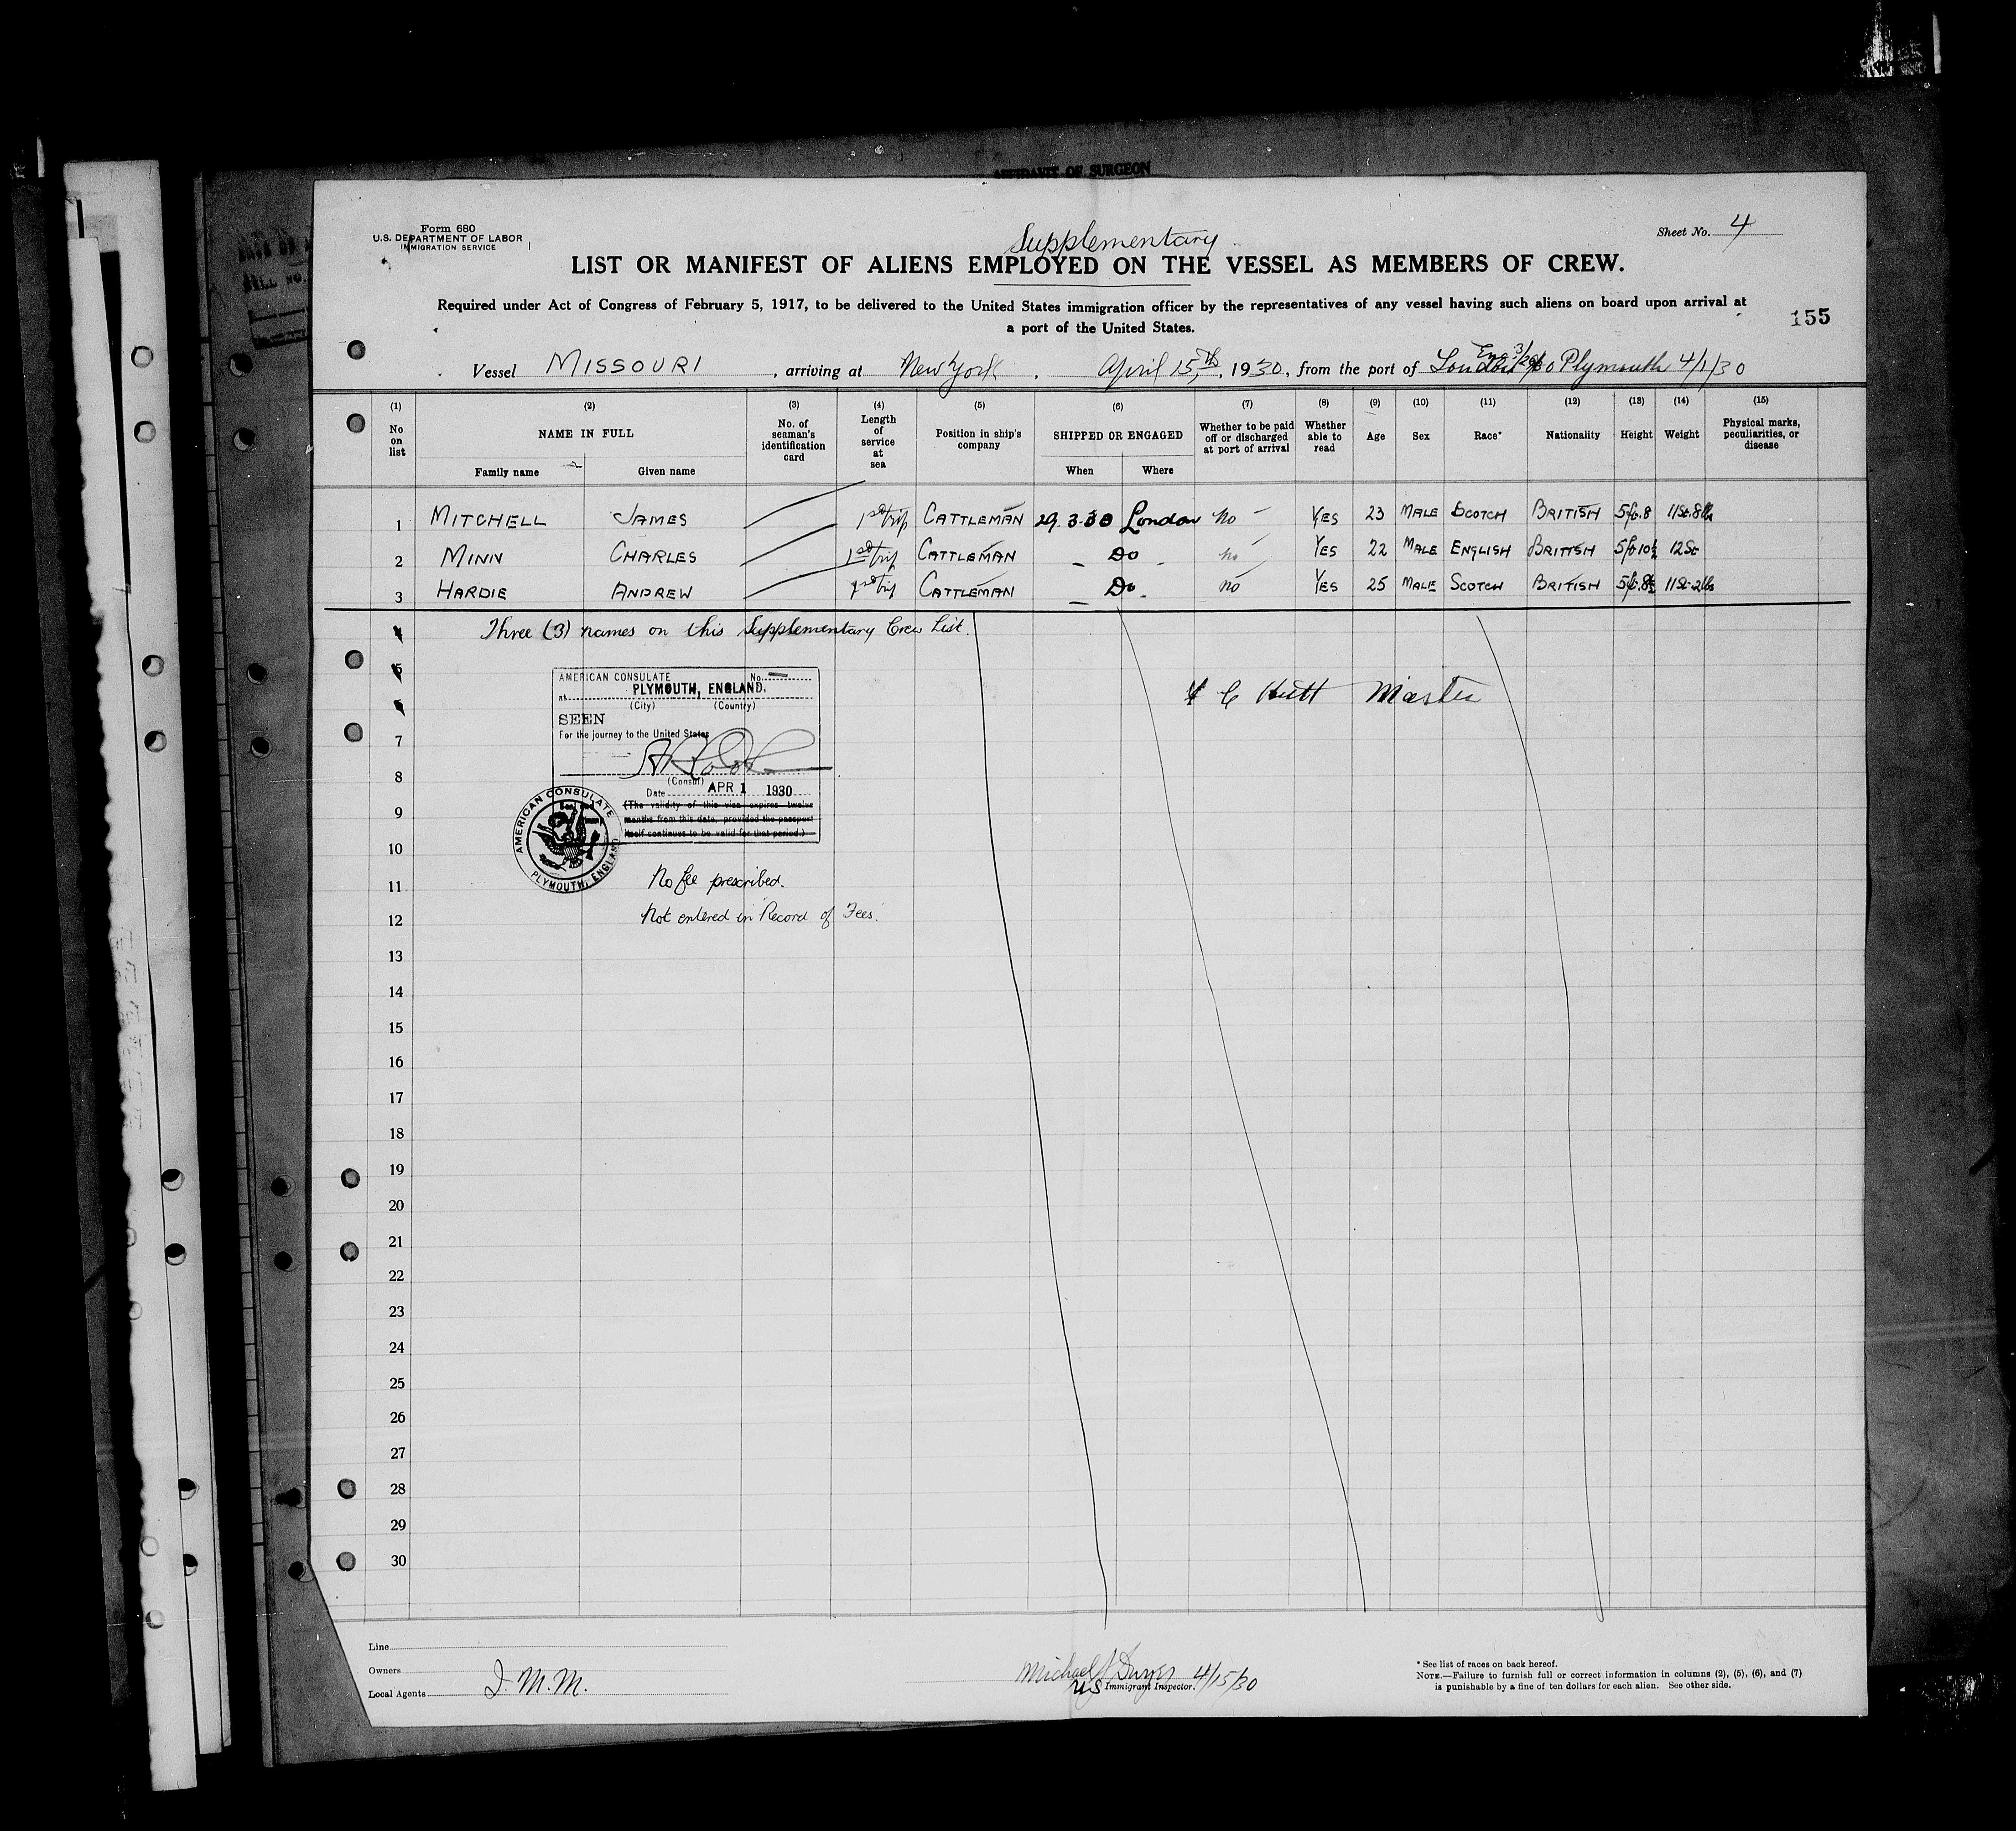 AFFIDAVIT OF SURGEON
Form 680
U.S. DEPARTMENT OF LABOR
IMMIGRATION SERVICE
Supplementary
Sheet No. 4
LIST OR MANIFEST OF ALIENS EMPLOYED ON THE VESSEL AS MEMBERS OF CREW.
Required under Act of Congress of February 5, 1917, to be delivered to the United States immigration officer by the representatives of any vessel having such aliens on board upon arrival at
a port of the United States.
155
Vessel MISSOURI, arriving at New York, April 15th, 1930, from the port of London Plymouth 4/1/30
(1) (2) (3) (4) (5) (6) (7) (8) (9) (10) (11) (12) (13) (14) (15)
No on list NAME IN FULL No. of seaman's identification card Length of service at sea Position in ship's company SHIPPED OR ENGAGED Whether to be paid off or discharged at port of arrival Whether able to read Age Sex Race* Nationality Height Weight Physical marks, peculiarities, or disease
Family name Given name When Where
1 MITCHELL JAMES 1st trip CATTLEMAN 29.3.30 London No YES 23 MALE SCOTCH BRITISH 5ft.8 11St.8lb
2 MINN CHARLES 1st trip CATTLEMAN Do No YES 22 MALE ENGLISH BRITISH 5ft10½ 12St
3 HARDIE ANDREW 1st trip CATTLEMAN Do No YES 25 MALE SCOTCH BRITISH 5ft.8½ 11St-2lbs
4 Three (3) names on this Supplementary Crew List.
5
6
7
8
9
10
11
12
13
14
15
16
17
18
19
20
21
22
23
24
25
26
27
28
29
30
AMERICAN CONSULATE No. —
at PLYMOUTH, ENGLAND.
(City) (Country)
SEEN
For the journey to the United States
(Consul)
Date APR 1 1930
(The validity of this visa expires twelve
months from this date, provided the passport
itself continues to be valid for that period.)
AMERICAN CONSULATE
PLYMOUTH, ENGLAND
No fee prescribed.
Not entered in Record of Fees.
Hutt Master
Line
Owners
Local Agents I. M. M.
Michael J Dwyer 4/15/30
US Immigrant Inspector.
* See list of races on back hereof.
NOTE.—Failure to furnish full or correct information in columns (2), (5), (6), and (7)
is punishable by a fine of ten dollars for each alien. See other side.